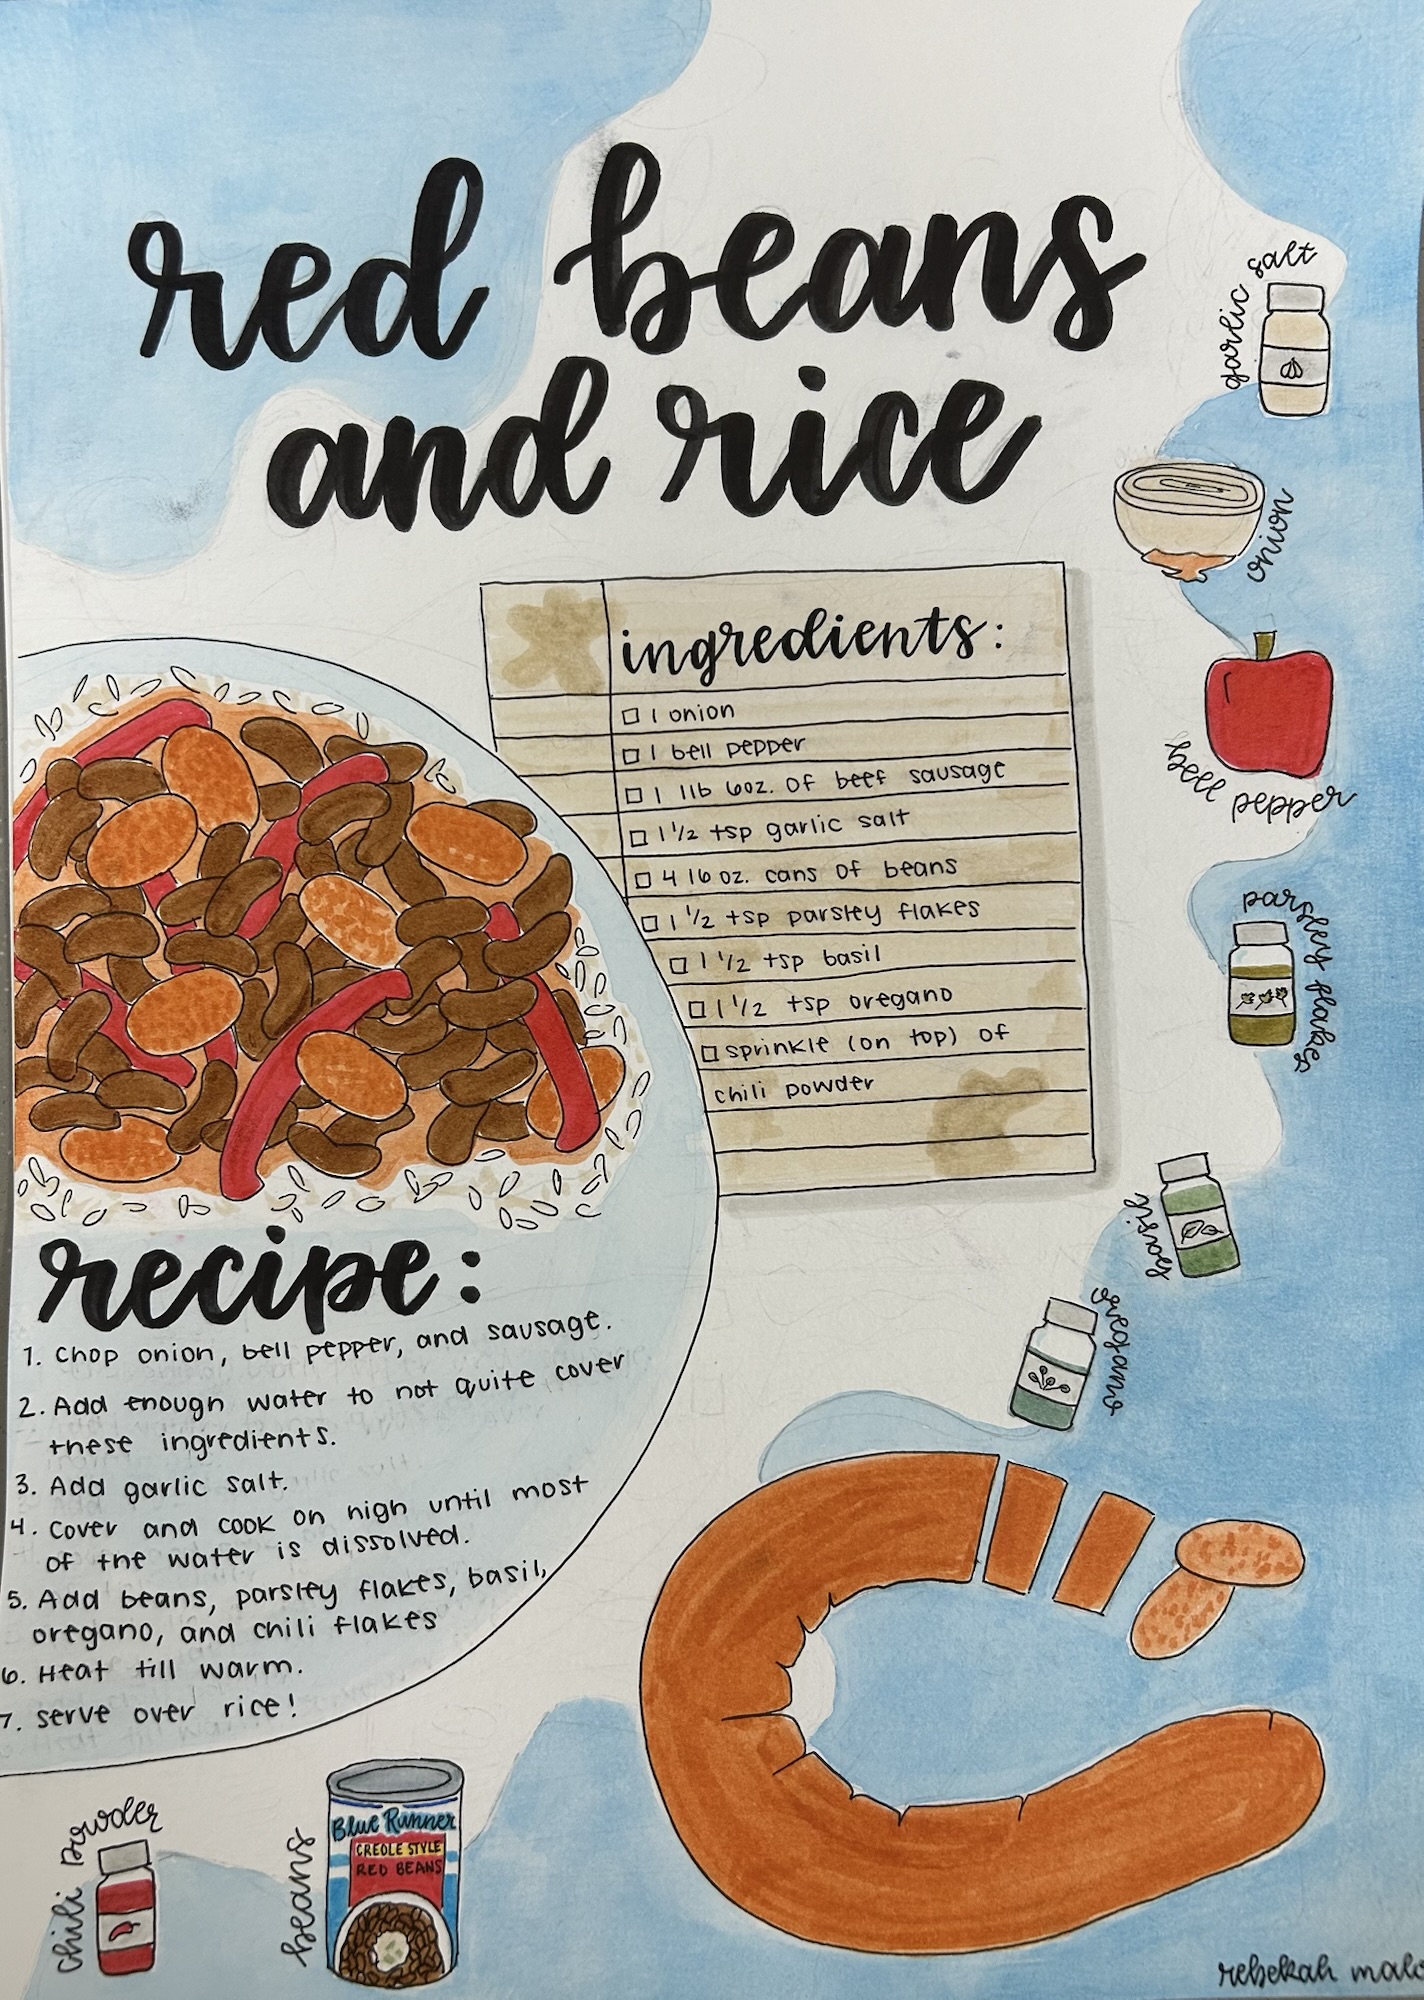 red beans
and rice
garlic salt
onion
bell pepper
parsley flakes
basil
oregano
ingredients:
1 onion
1 bell pepper
1 1lb 6oz. of beef sausage
1 1/2 tsp garlic salt
4 16 oz. cans of beans
1 1/2 tsp parsley flakes
1 1/2 tsp basil
1 1/2 tsp oregano
sprinkle (on top) of
chili powder
recipe:
1. Chop onion, bell pepper, and sausage.
2. Add enough water to not quite cover
these ingredients.
3. Add garlic salt.
4. Cover and cook on high until most
of the water is dissolved.
5. Add beans, parsley flakes, basil,
oregano, and chili flakes
6. Heat till warm.
7. serve over rice!
chili powder
beans
Blue Runner
CREOLE STYLE
RED BEANS
rebekah